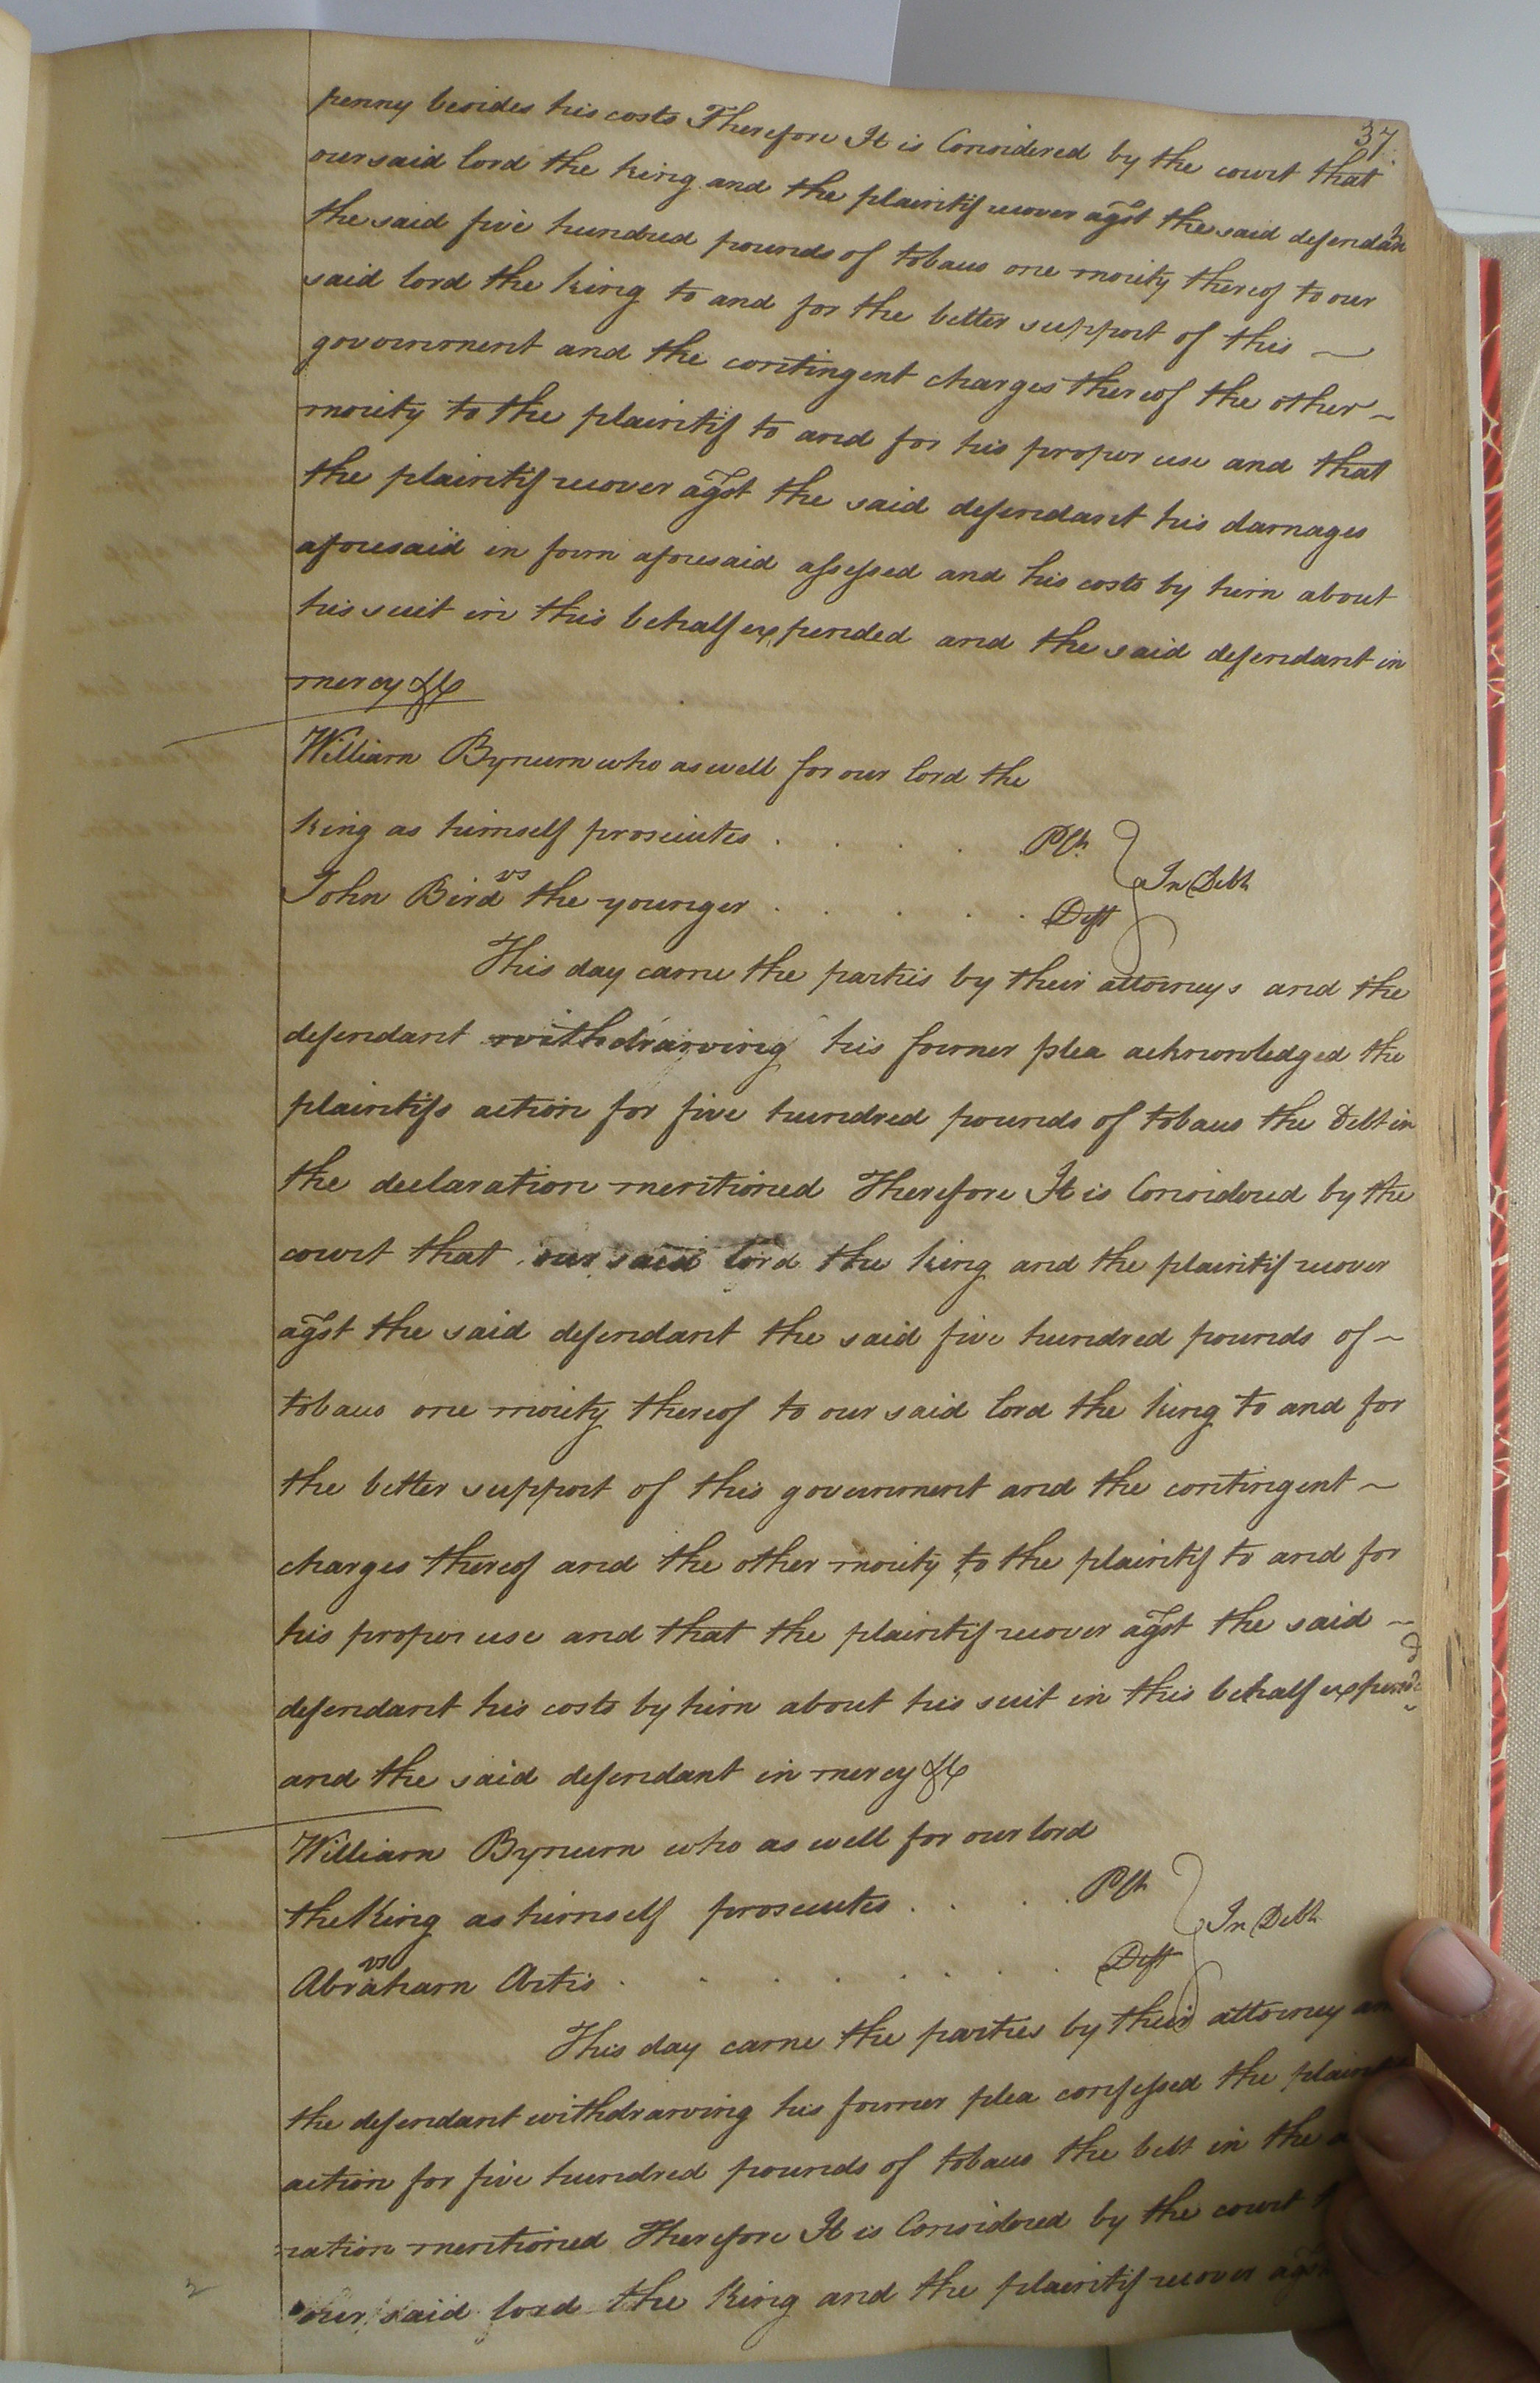 37.
penny besides his costs Therefore It is Considered by the court that
our said lord the king and the plaintif recover agst the said defendan
the said five hundred pounds of tobaco one moity thereof to our
said lord the king to and for the better support of this —
government and the contingent charges thereof the other –
moiety to the plaintif to and for his proper use and that
the plaintif recover agst the said defendant his damages
aforesaid in form aforesaid assessed and his costs by him about
his suit in this behalf expended and the said defendant in
mercy &c
William Bynum who as well for our lord the
king as himself prosecutes . . . . Plt
vs
In Debt
John Bird the younger . . . . . Deft
This day came the parties by their attorneys and the
defendant withdrawing his former plea acknowledged the
plaintifs action for five hundred pounds of tobaco the Debt in
the declaration mentioned Therefore It is Considered by the
court that our said lord the king and the plaintif recover
agst the said defendant the said five hundred pounds of –
tobaco one moiety thereof to our said lord the king to and for
the better support of this government and the contingent –
charges thereof and the other moiety to the plaintif to and for
his proper use and that the plaintif recover agst the said –
defendant his costs by him about his suit in this behalf expended
and the said defendant in mercy &c
William Bynum who as well for our lord
the King as himself prosecutes . . . . Plt
In Debt
vs
Abraham Artis . . . . . . . Deft
This day came the parties by their attorney
the defendant withdrawing his former plea confessed the
action for five hundred pounds of tobaco the bebt in the
ration mentioned Therefore It is Considered by the court
our said lord the King and the plaintif recover agst
2